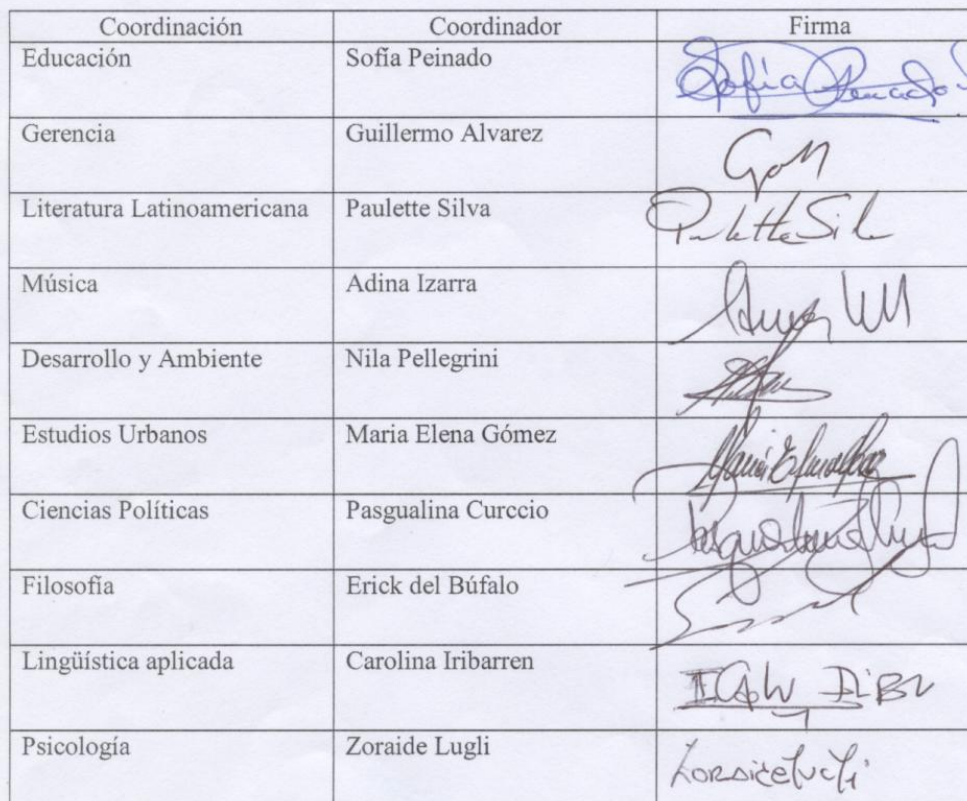 Coordinación Coordinador Firma
Educación Sofía Peinado Sofia Peinado
Gerencia Guillermo Alvarez
Literatura Latinoamericana Paulette Silva Paulette Silva
Música Adina Izarra
Desarrollo y Ambiente Nila Pellegrini
Estudios Urbanos Maria Elena Gómez
Ciencias Políticas Pasgualina Curccio
Filosofía Erick del Búfalo
Lingüística aplicada Carolina Iribarren
Psicología Zoraide Lugli